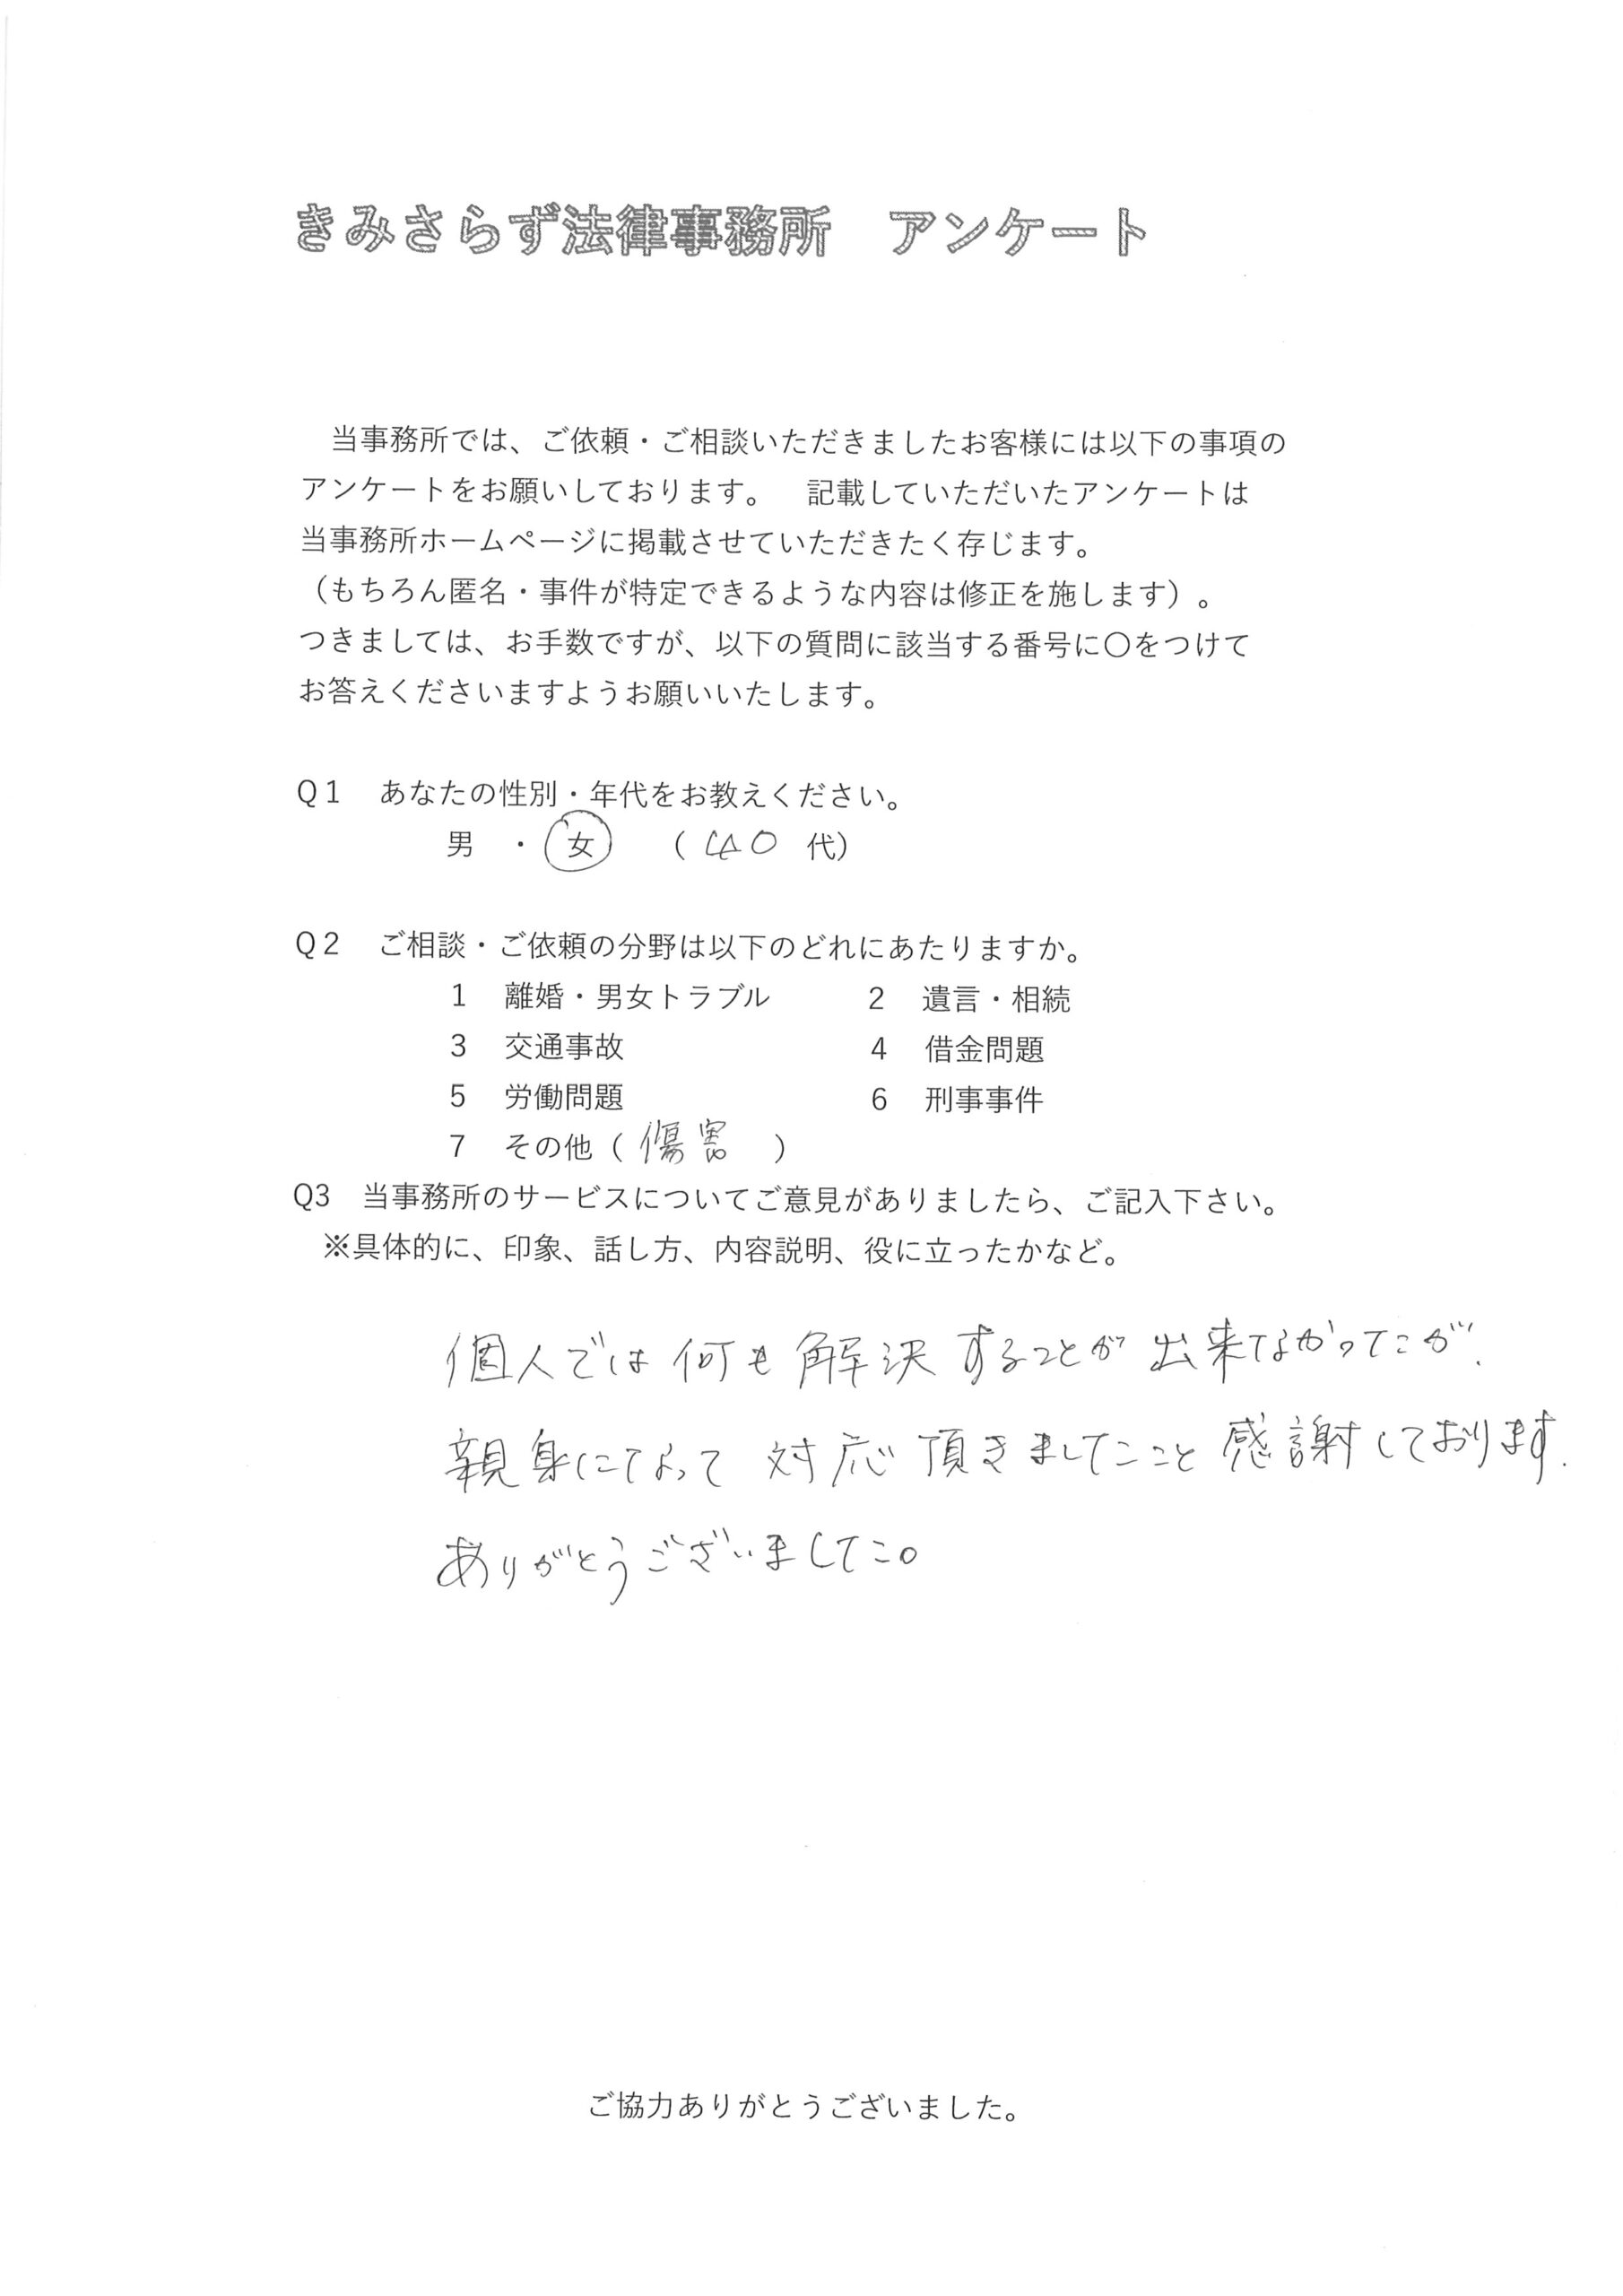 きみさらず法律事務所　アンケート
当事務所では、ご依頼・ご相談いただきましたお客様には以下の事項の
アンケートをお願いしております。　記載していただいたアンケートは
当事務所ホームページに掲載させていただきたく存じます。
（もちろん匿名・事件が特定できるような内容は修正を施します）。
つきましては、お手数ですが、以下の質問に該当する番号に〇をつけて
お答えくださいますようお願いいたします。
Q1　あなたの性別・年代をお教えください。
男　・　女　（ 40 代）
Q2　ご相談・ご依頼の分野は以下のどれにあたりますか。
1　離婚・男女トラブル　2　遺言・相続
3　交通事故　4　借金問題
5　労働問題　6　刑事事件
7　その他（ 傷害　）
Q3　当事務所のサービスについてご意見がありましたら、ご記入下さい。
※具体的に、印象、話し方、内容説明、役に立ったかなど。
個人では何も解決することが出来なかったが、
親身になって対応頂きましたこと感謝しております.
ありがとうございました。
ご協力ありがとうございました。